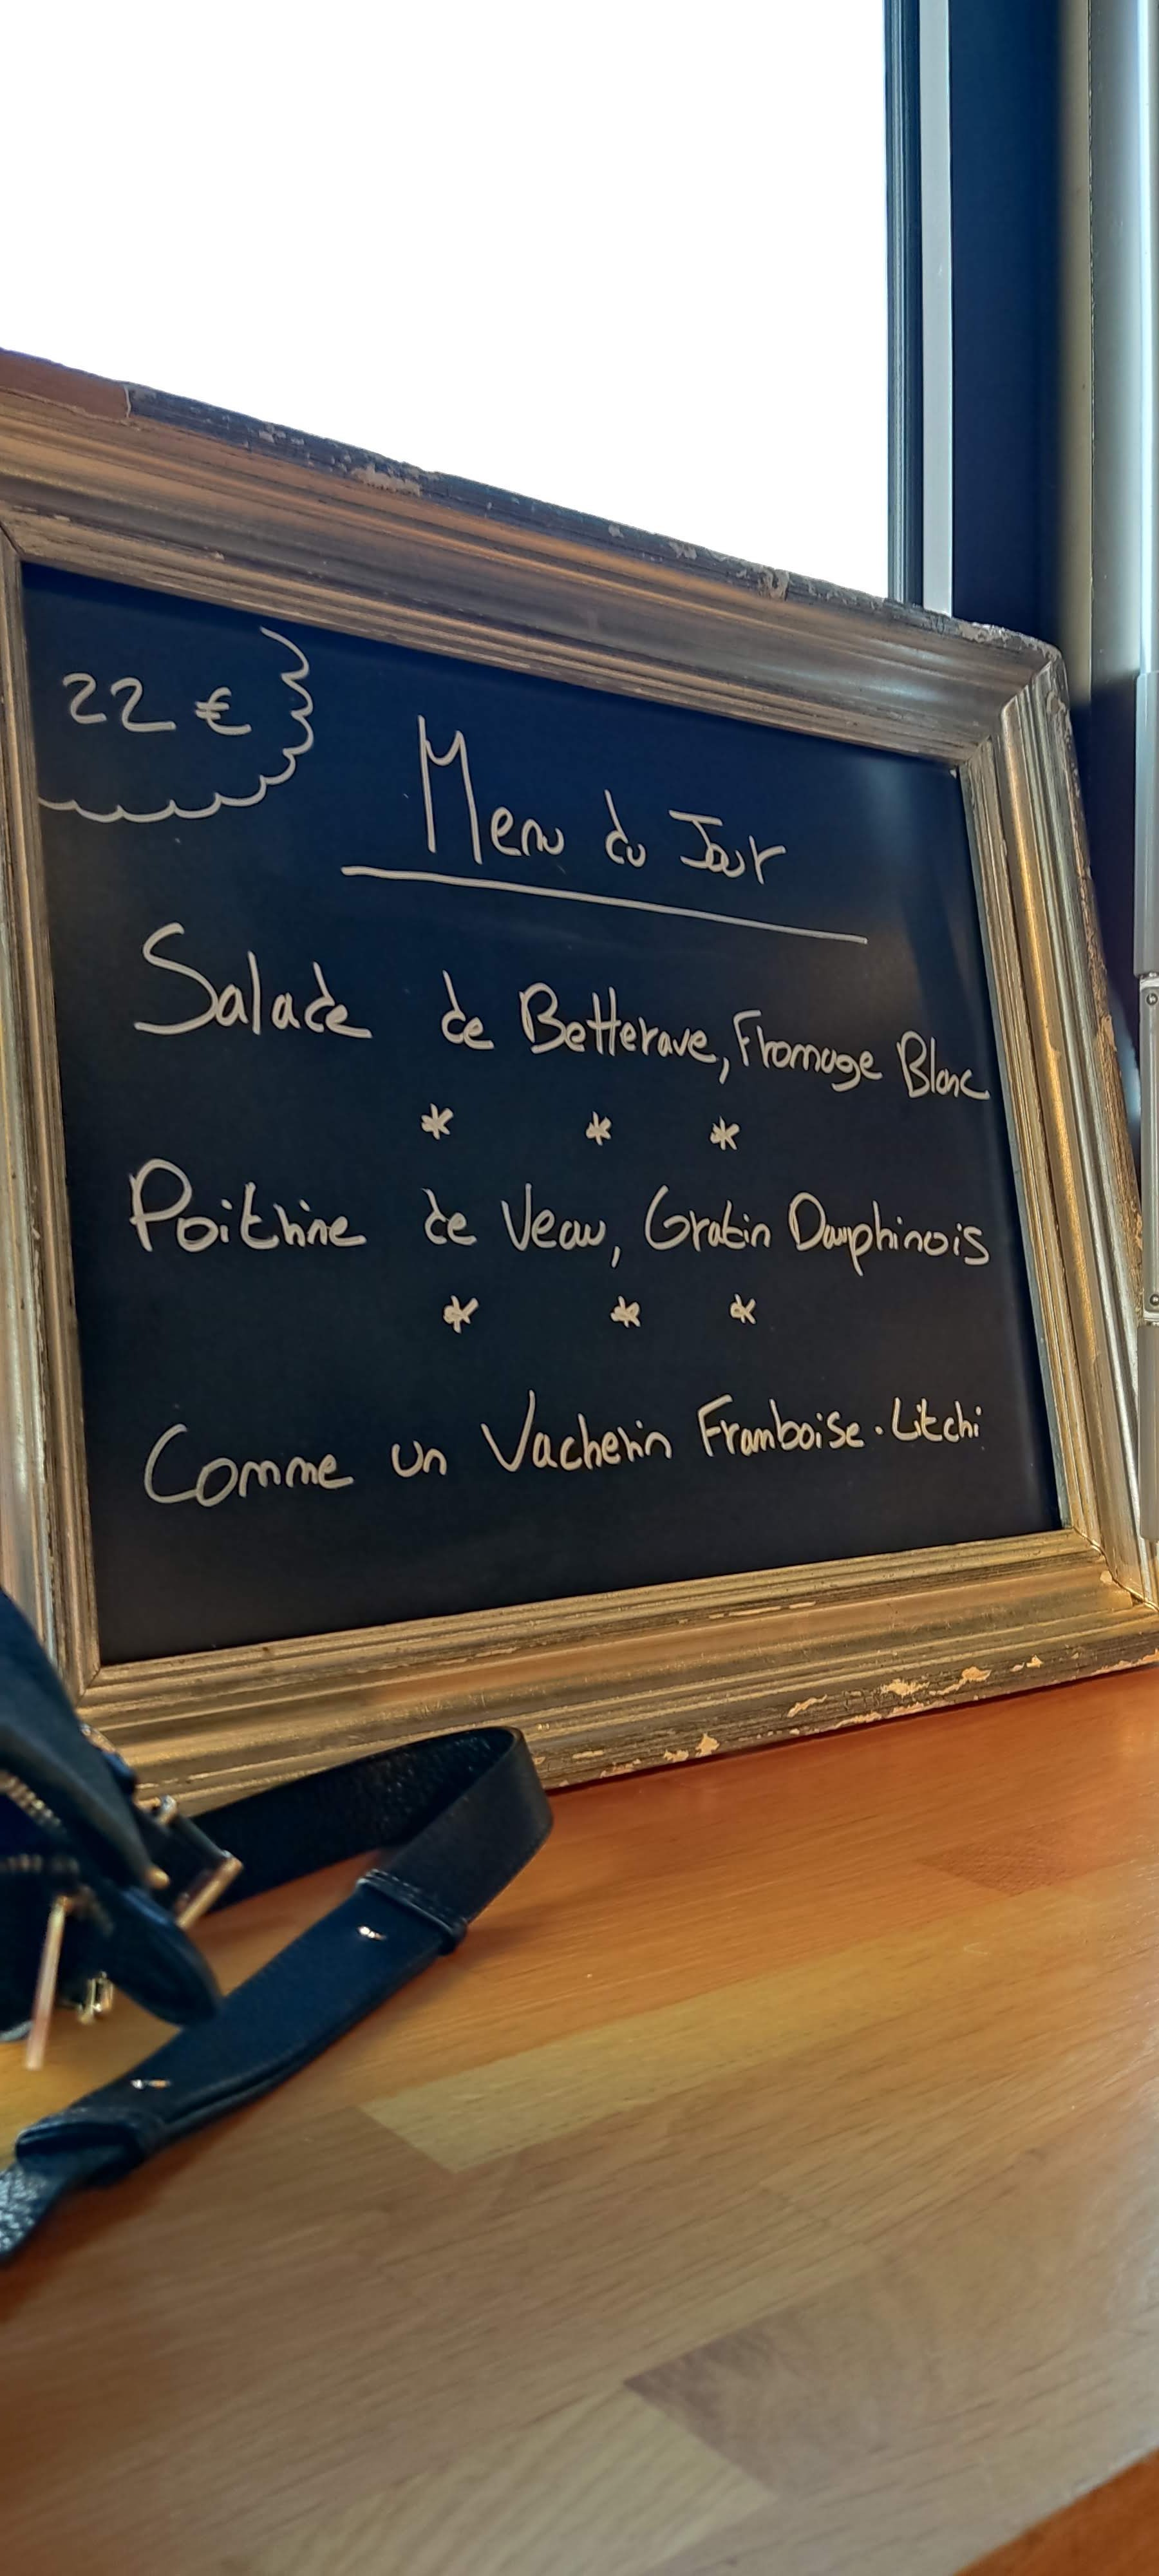 22 €
Menu du Jour
Salade de Betterave, Fromage Blanc
* * *
Poitrine de Veau, Gratin Dauphinois
* * *
Comme un Vacherin Framboise. Litchi